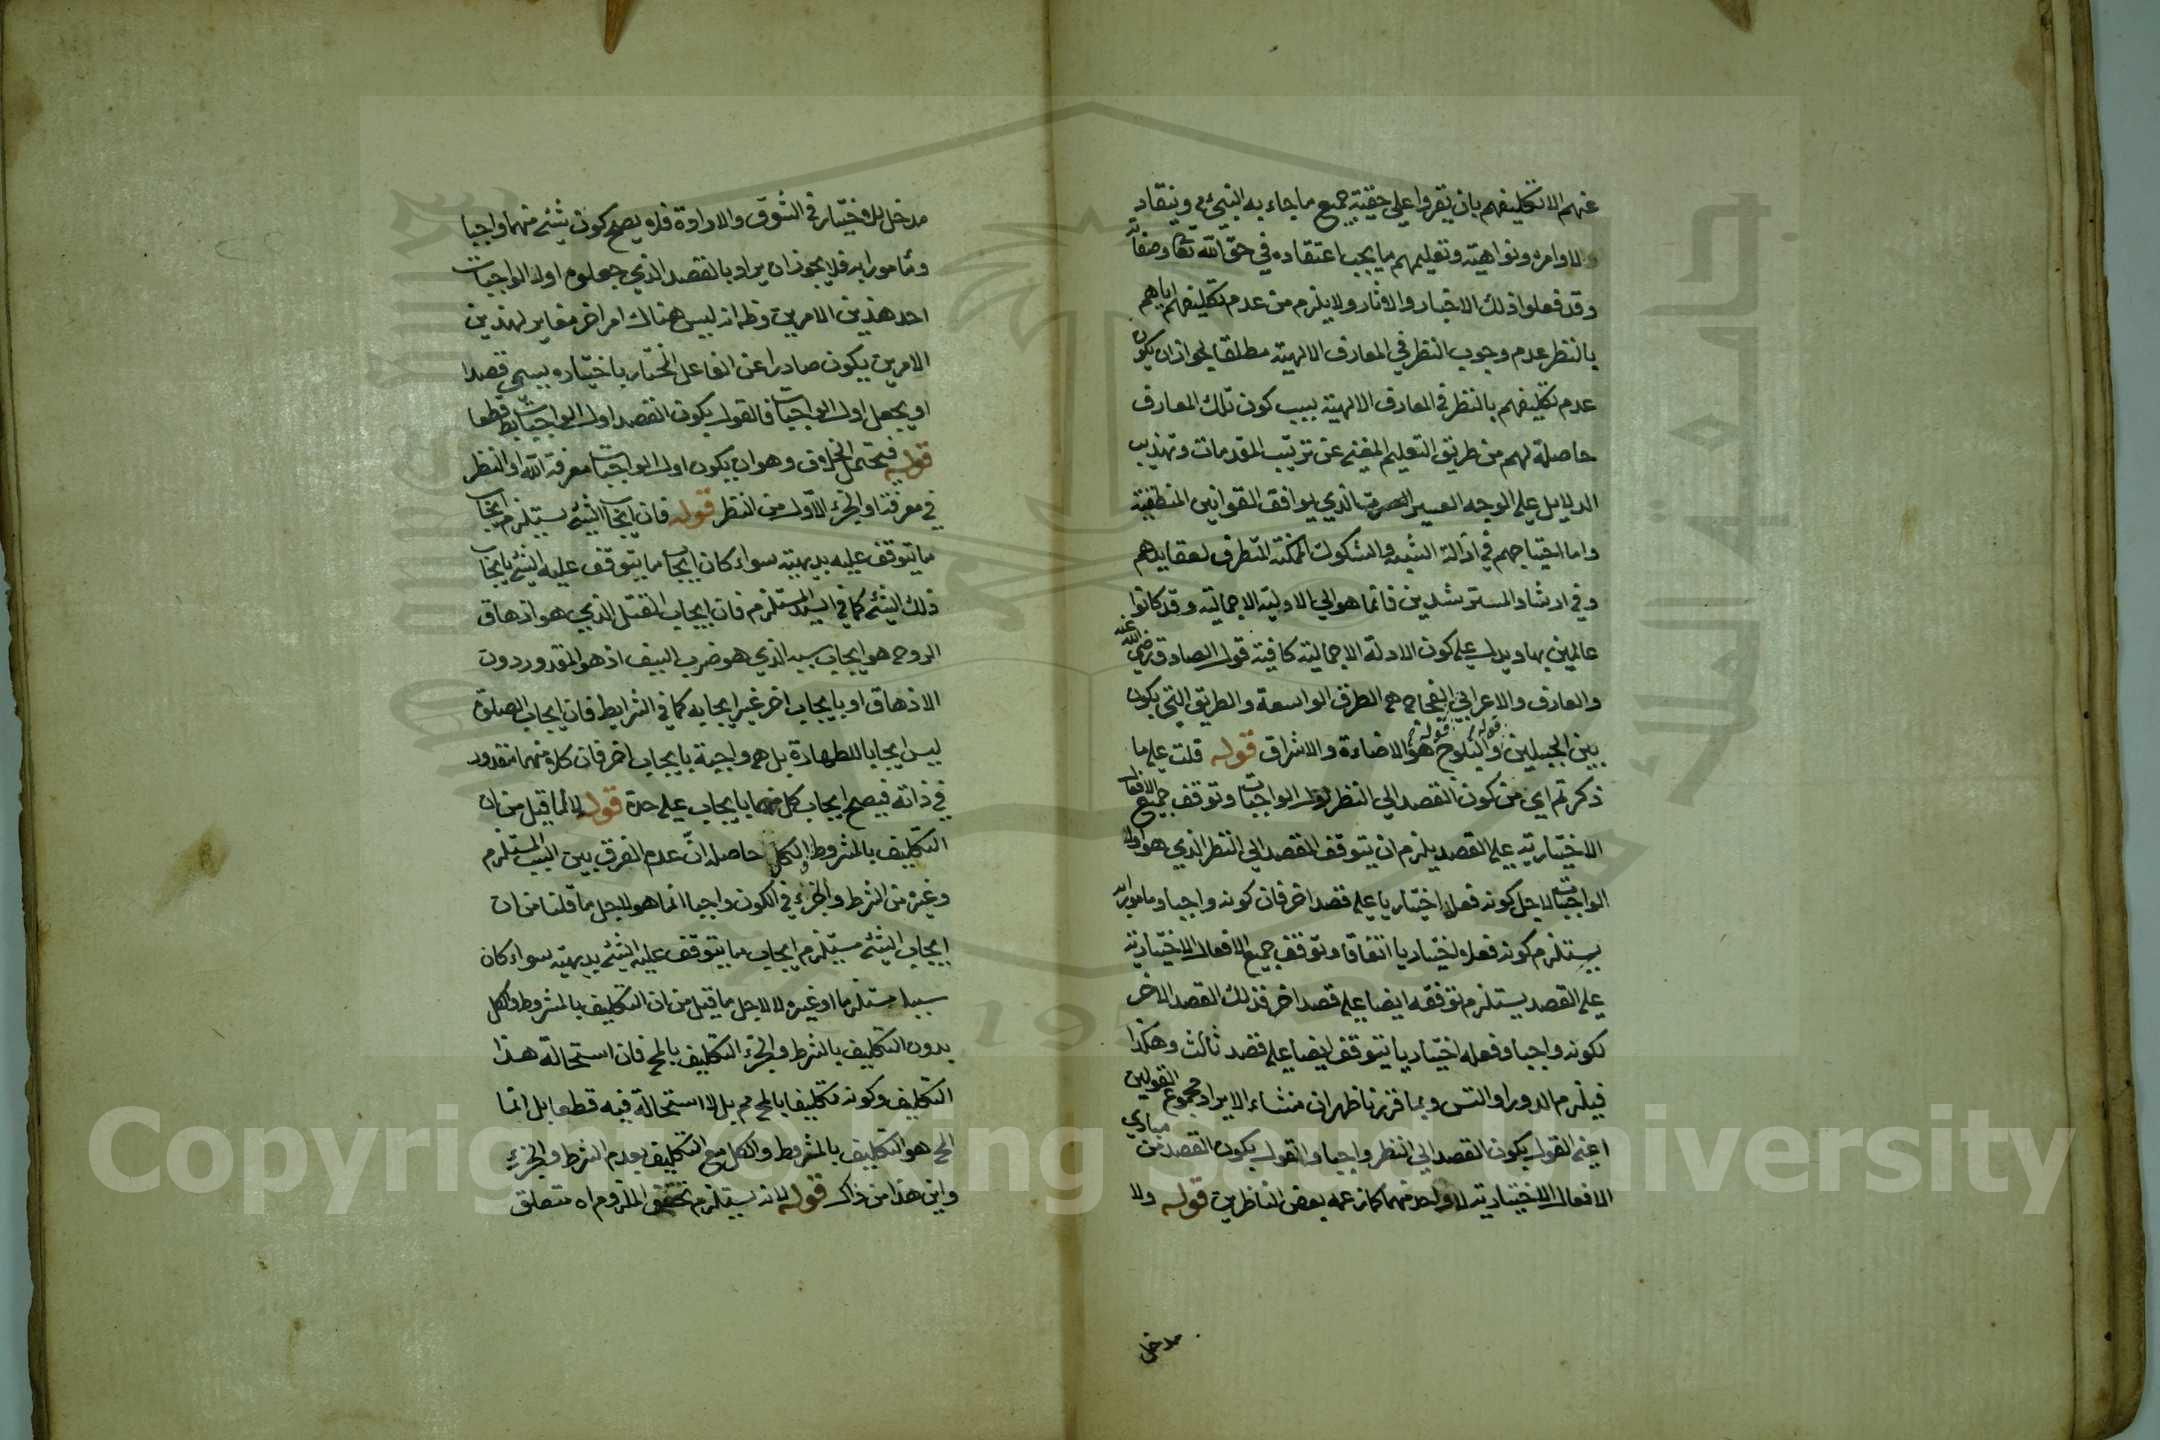 عنهم الا تكليفهم بان يقروا على حقية جميع ما جاء به النبي ع م وينقاد
والاوامره ونواهيه وتعليمهم ما يجب اعتقاده في حق الله تعا وصفاته
وقد فعلوا ذلك الاخبار والاثار ولا يلزم من عدم تكليفهم اياهم
بالنظر عدم وجوب النظر في المعارف الالهية مطلقا لجواز ان يكون
عدم تكليفهم بالنظر في المعارف الالهية بسبب كون تلك المعارف
حاصلة لهم من طريق التعليم المغني عن ترتيب المقدمات وتهذيب
الدلايل على الوجه العسير الذي يوافق القوانين المنطقية
واما احتياجهم في ازالة الشبه والشكوك الممكنة التطرق لعقايدهم
وفي ارشاد المسترشدين فانما هو الى الادلة الاجمالية وقد كانوا
عالمين بها ويدل على كون الادلة الاجمالية كافية قول الصادق رضي الله عنه
والعارف والاعرابي الفجاج هي الطرق الواسعة والطريق التي يكون
بين الجبلين قوله والبلوج قوله هو الاضاءة والاشراق قوله قلت على ما
ذكرتم اي من كون القصد الى النظر اول الواجبات وتوقف جميع الافعال
الاختيارية على القصد يلزم ان يتوقف القصد الى النظر الذي هو اول
الواجبات لاجل كونه فعلا اختياريا على قصد اخر فان كونه واجبا ومامورا به
يستلزم كونه فعلا اختياريا اتفاقا وتوقف جميع الافعال الاختيارية
على القصد يستلزم توقفه ايضا على قصد اخر فذلك القصد الاخر
لكونه واجبا وفعلا اختياريا يتوقف ايضا على قصد ثالث وهكذا
فيلزم الدور او التس وبما قررنا ظهر ان منشاء الايراد مجموع القولين
اعني القول بكون القصد الى النظر واجبا والقول بكون القصد من مبادي
الافعال الاختيارية لا واحد منهما كما زعمه بعض الناظرين قوله ولا
مدخل
مدخل للاختيار في الشوق والارادة فلا يصح كون شئ منهما واجبا
ومامورا به فلا يجوز ان يراد بالقصد الذي جعلوه اول الواجبات
احد هذين الامرين وظ انه ليس هناك امر اخر مغاير لهذين
الامرين يكون صادرا عن الفاعل المختار باختياره يسمى قصدا
او يجعل اول الواجبات فالقول بكون القصد اول الواجبات بط قطعا
قوله فيحتمل الخلاف وهو ان يكون اول الواجبات معرفة الله او النظر
في معرفته او الجزء الاول من النظر قوله فان ايجاب الشئ يستلزم ايجاب
ما يتوقف عليه بديهية سواء كان ايجاب ما يتوقف عليه الشئ بايجاب
ذلك الشئ كما في السبب المستلزم فان ايجاب القتل الذي هو ازهاق
الروح هو ايجاب سببه الذي هو ضرب السيف اذ هو المقدور دون
الازهاق او بايجاب اخر غير ايجابه كما في الشرايط فان ايجاب الصلوة
ليس ايجابا للطهارة بل هي واجبة بايجاب اخر فان كلا منهما مقدور
في ذاته فيصح ايجاب كل منهما بايجاب على حدة قوله لا لما قيل من ان
التكليف بالمشروط او الكل حاصله ان عدم الفرق بين السبب المستلزم
وغيره من الشرط والجزء في الكون واجبا انما هو لاجل ما قلنا من ان
ايجاب الشئ مستلزم ايجاب ما يتوقف عليه الشئ بديهية سواء كان
سببا مستلزما او غيره لا لاجل ما قيل من ان التكليف بالمشروط والكل
بدون التكليف بالشرط والجزء التكليف بالمح فان استحالة هذا
التكليف وكونه تكليفا بالمح مم بل لا استحالة فيه قطعا بل انما
المح هو التكليف بالمشروط والكل مع التكليف بعدم الشرط والجزء
واين هذا من ذاك قوله لانه يستلزم تحقق الملزوم اه متعلق
Copyright © King Saud University